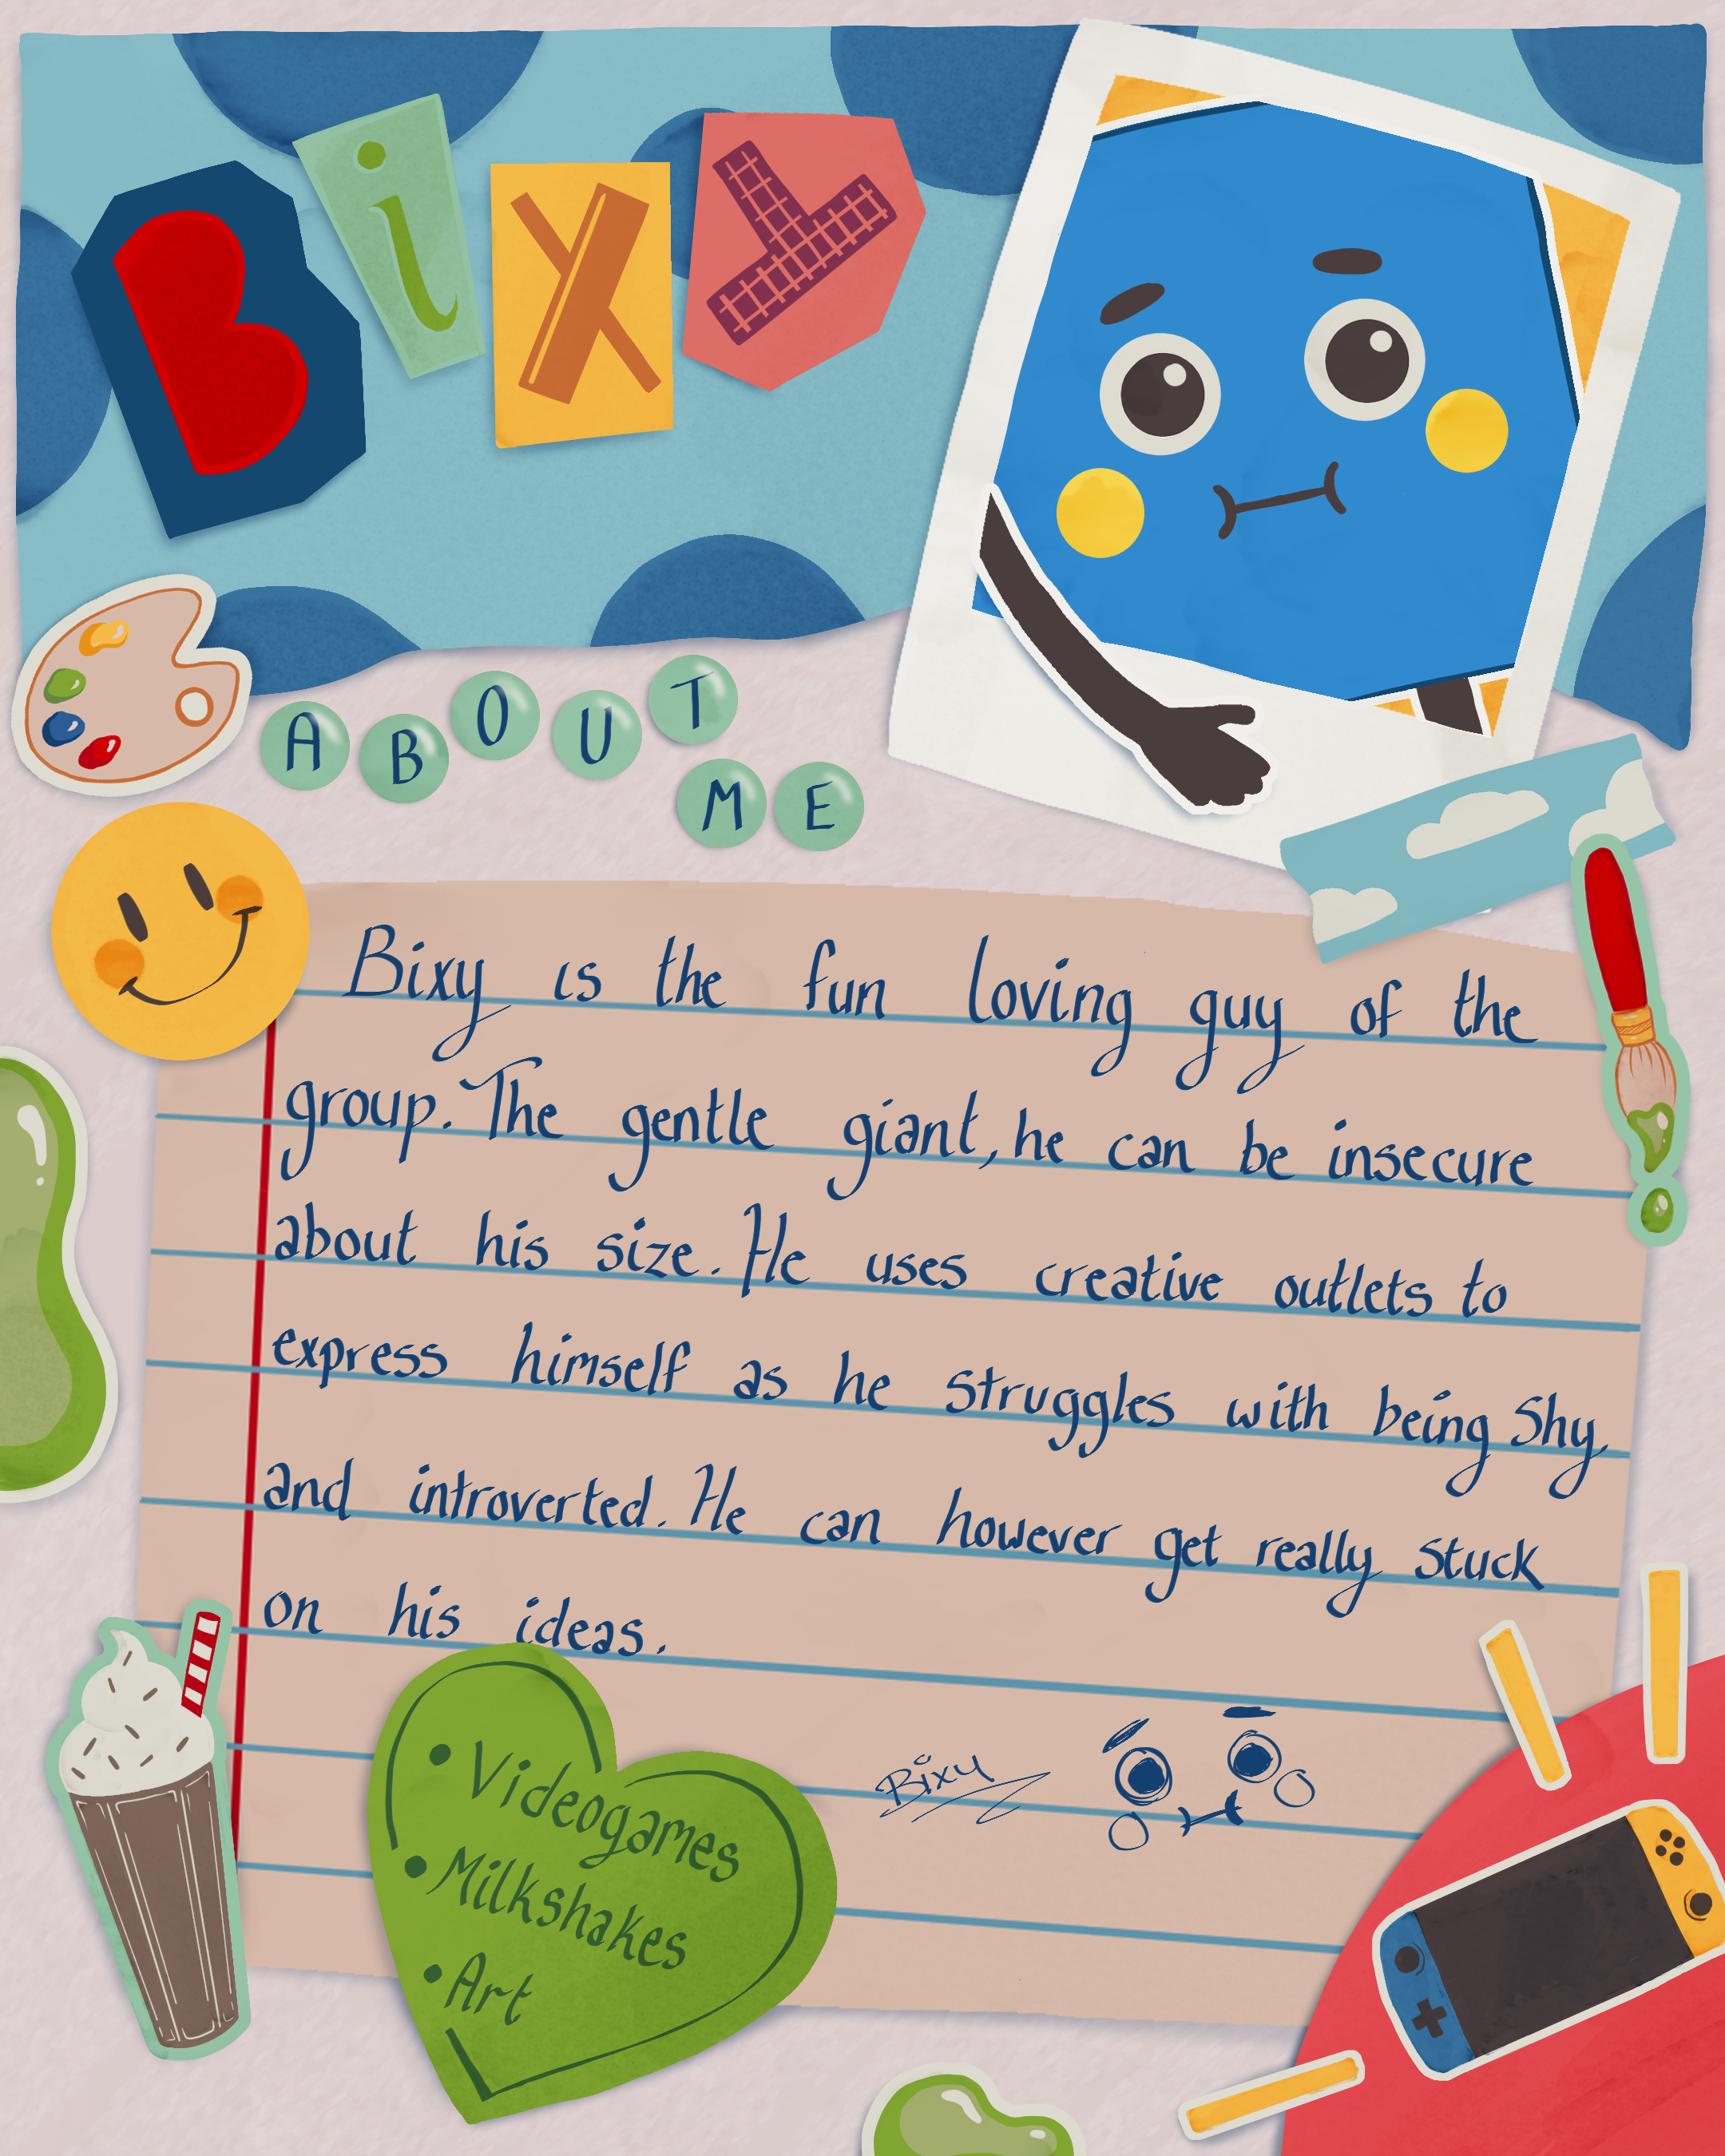 BiXY
ABOUT
ME
Bixy is the fun loving guy of the
group. The gentle giant, he can be insecure
about his size. He uses creative outlets to
express himself as he struggles with being shy
and introverted. He can however get really stuck
on his ideas.
• Videogames
• Milkshakes
• Art
Bixy